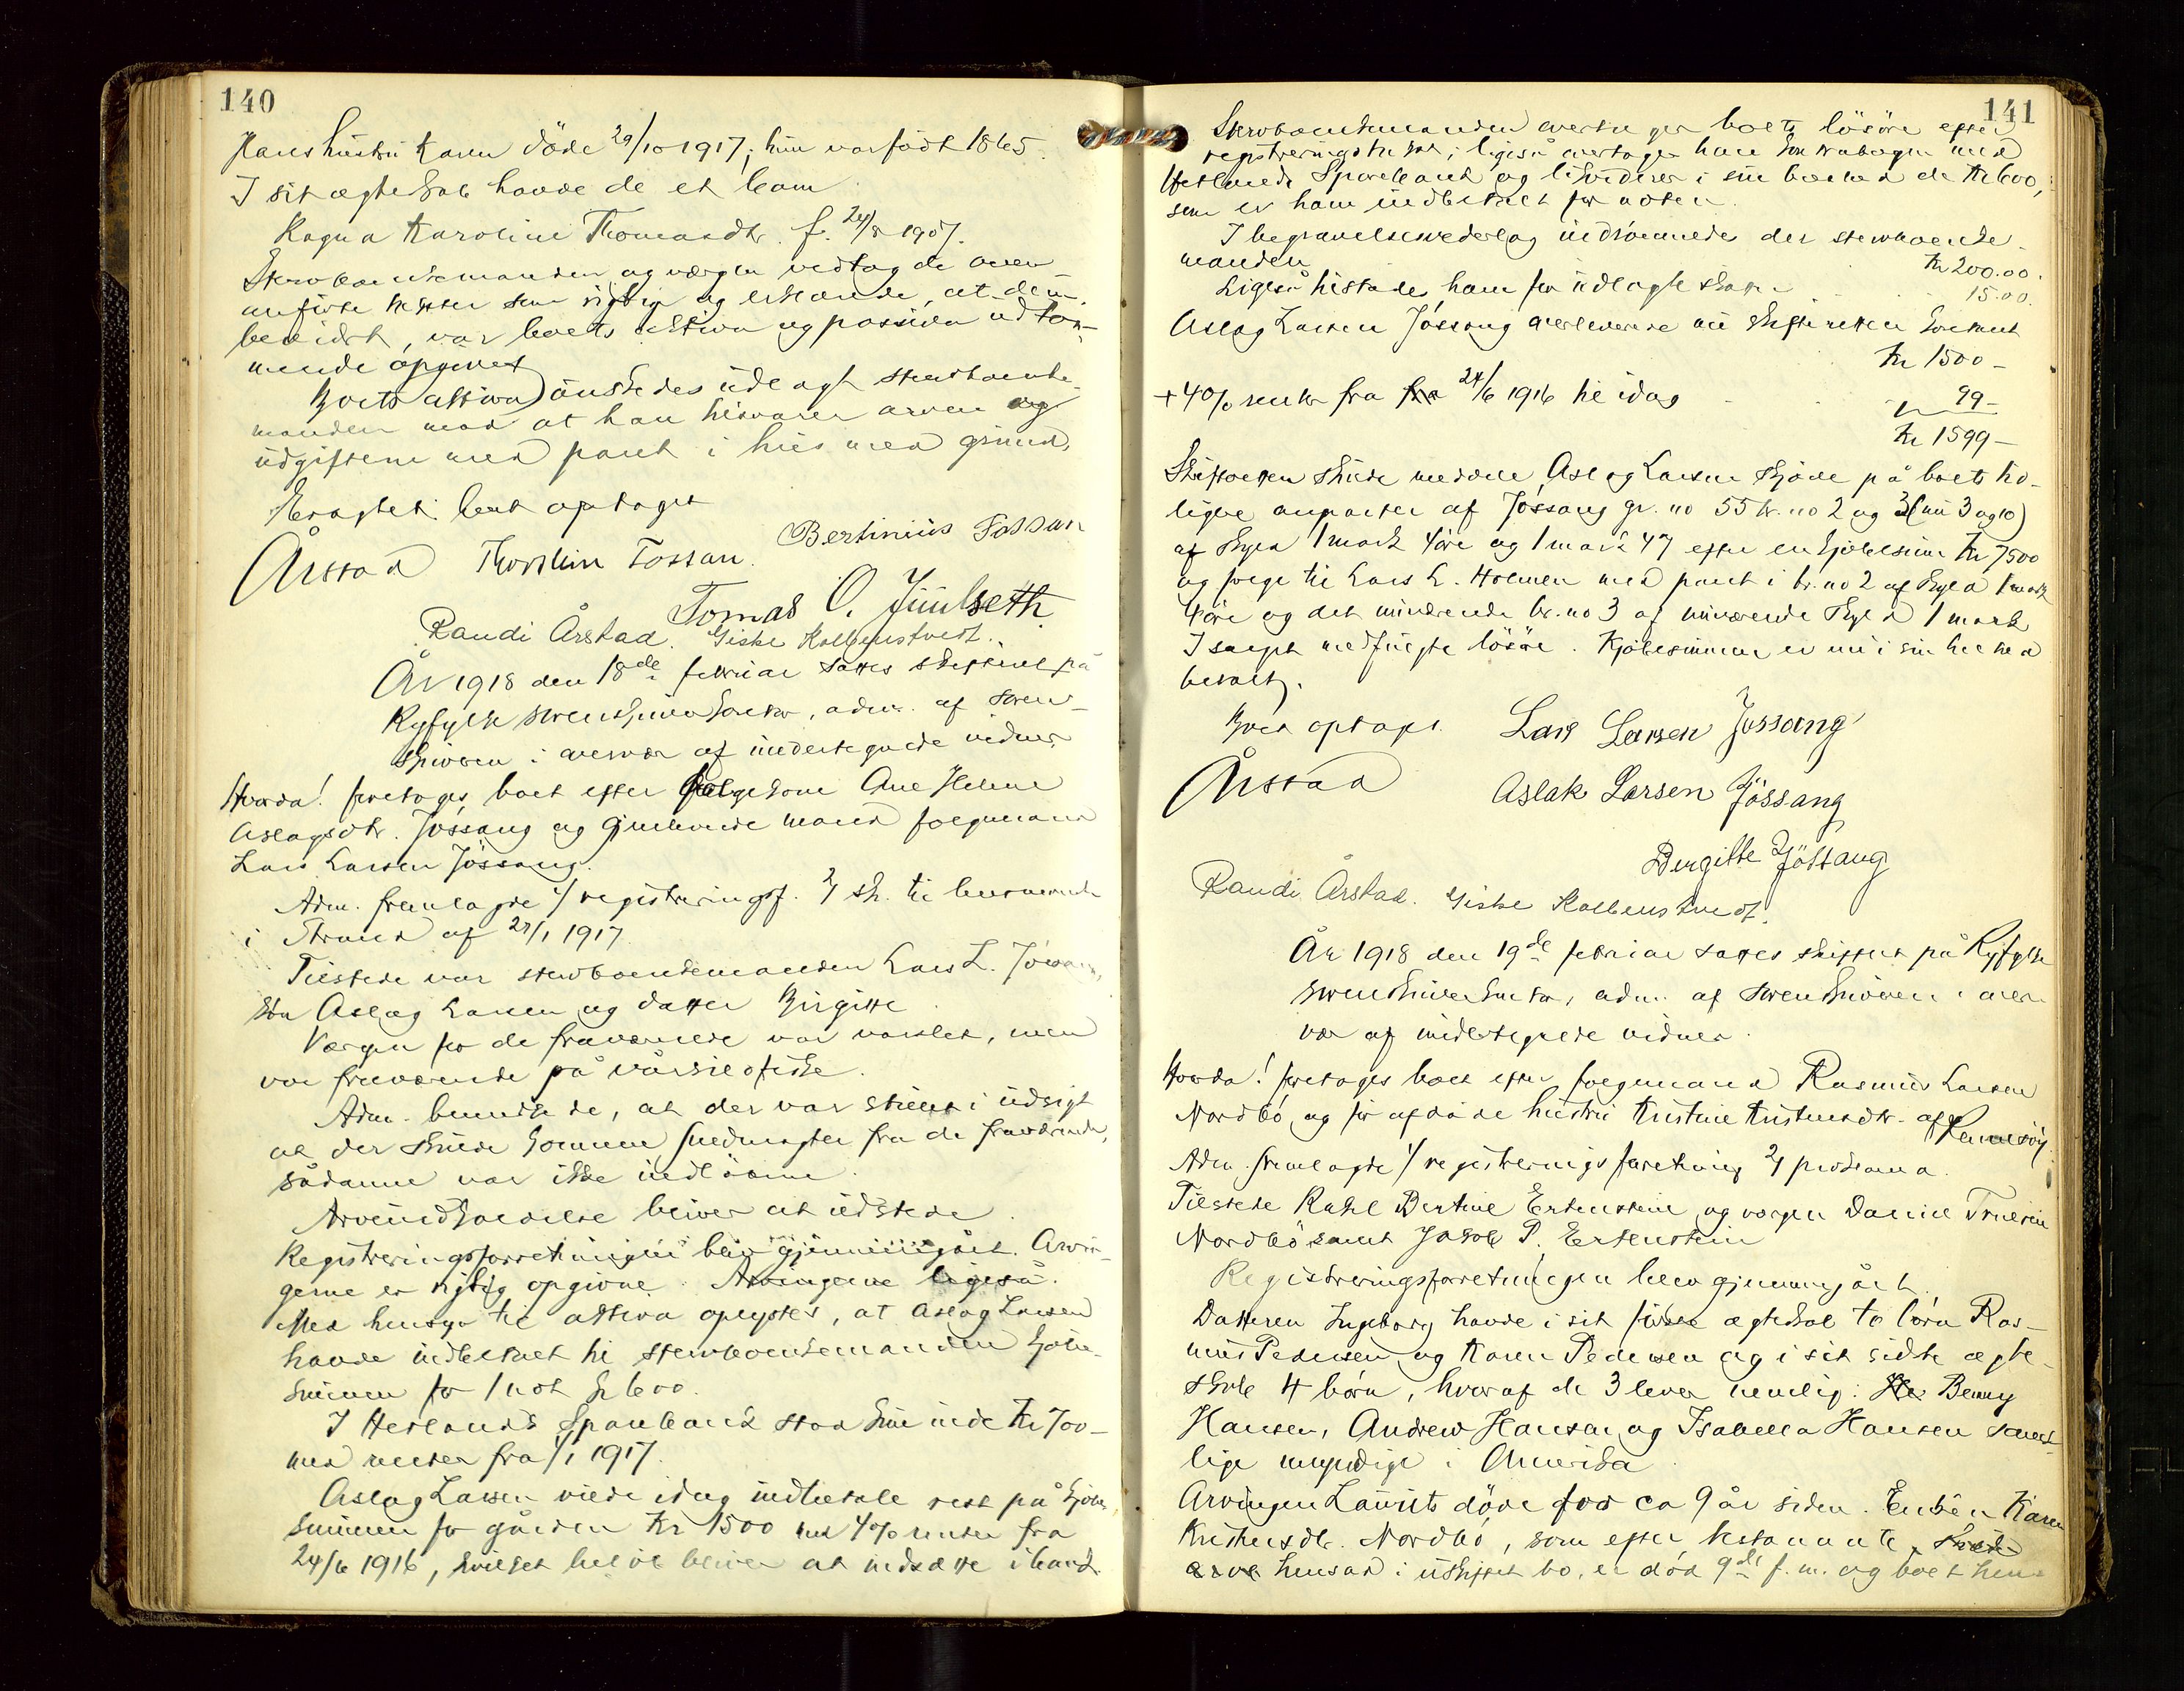 140
Hans hustru Karen döde 29/10 1917; hun var födt 1865.
I sit ægteskab havde de et barn
Ragna Karoline Thomasdtr. f. 24/8 1907.
Stervboenkemanden og værgen vedtog de oven
anförte skifter som rigtig og erklærede, at dem
bevidst, var boets aktiva og passiva udtöm-
mende opgivet
Boets aktiva önskedes udlagt sterboenke-
manden mod at han tilsvarer arven og
udgifterne med pant i hus med grund.
Eragtet: boet optaget
Årstad Thorstein Fossan. Bertinius Fossan
Tomas O.
Randi Årstad. Giske Kolbenstvedt.
År 1918 den 18de februar sattes skifteret på
Ryfylke sorenskriverkontor, adm. af soren-
skriveren i overvær af undertegnede vidner
Hvorda! foretoges boet efter folgekone Ane Helene
Aslagsdtr. Jössang og gjenlevende mand folgemand
Lars Larsen Jössang.
Adm. fremlagde 1/ registreringsf. 2/ sk. til lensmand
i Strand af 29/1 1917
Tilstede var sterboenkemanden Lars L. Jössang,
sön Aslag Larsen og datter Birgitte
Værgen for de fraværende var varslet, men
var fraværende på vårsildfiske.
Adm. bemærkede, at der var stillet i udsigt
at der skulde komme fuldmagter fra de fraværende,
sådanne var ikke indkomne
Arveindkaldelse bliver at udstede
Registreringsforretningen blev gjennemgået. Arvin-
gerne er rigtig opgivne. Arvingerne ligeså.
Med hensyn til aktiva oplystes, at Aslag Larsen
havde indbetalt til sterboenkemanden kjöbe-
summen for 1 not kr 600.
I Hetlands Sparebank stod kun inde Kr 700-
med renter fra 1/1 1917.
Aslag Larsen vilde idag indbetale rest på kjöbe
summen for gården Kr 1500 med 4% renter fra
24/6 1916, hvilket belöb bliver at indsætte i bank.
141
Sterboenkemanden overtager boets lösöre efter
registreringstakst; ligeså overtager han bankbogen med
Hetlands Sparebank og likviderer i sin helhed de Kr 600,
som er ham indbetalt for noten.
I begravelsesvederlag indrömmedes der sterboenke-
manden Kr 200.00.
Ligeså tilstodes ham for udlagte skatter 15.00.
Aslag Larsen Jössang overleverede nu skifteretten kontant
Kr 1500 -
+ 4% renter fra 24/6 1916 til idag 99 -
Kr 1599 -
Skifteretten skulde meddele Aslag Larsen skjöde på boets tid-
ligere anparter af Jössang gr. no 55 br. no 2 og 3 (nu 3 og 10)
af skyld 1 mark 4 öre og 1 mark 47 efter en kjöbesum Kr 7500
og folge til Lars L. Holmen med pant i br. no 2 af skyld 1 mark
4 öre og det nuværende br. no 3 af nuværende skyld 1 mark
I salget medfulgte lösöre. Kjöbesummen er nu i sin helhed
betalt.
Boet optaget. Lars Larsen Jössang
Årstad Aslak Larsen Jössang
Birgitte Jössang
Randi Årstad. Giske Kolbenstvedt.
År 1918 den 19de februar sattes skifteret på Ryfylke
sorenskriverkontor, adm. af sorenskriveren i over-
vær af undertegnede vidner.
Hvorda! foretoges boet efter folgemand Rasmus Larsen
Nordbö og för afdöde hustru Kristine Kristensdtr. af Rennesöy.
Adm. fremlagde 1/ registreringsforretning 2/ proklama.
Tilstede Rakel Bertine Ertenstein og værgen Daniel
Nordbö samt Jakob P. Ertenstein
Registreringsforretningen blev gjennemgået.
Datteren Ingeborg havde i sit förste ægteskab to börn Ras-
mus Pedersen og Karen Pedersen og i sit sidste ægte-
skab 4 börn, hvoraf de 3 lever nemlig: Benny
Hansen, Andrew Hansen og Isabella Hansen samt-
lige myndige i Amerika
Arvingen Laurits döde for ca 9 år siden. Enken Karen
Kristensdtr. Nordbö, som efter testamente
hensad i uskiftet bo, er död 9de f. m. og boet hen-